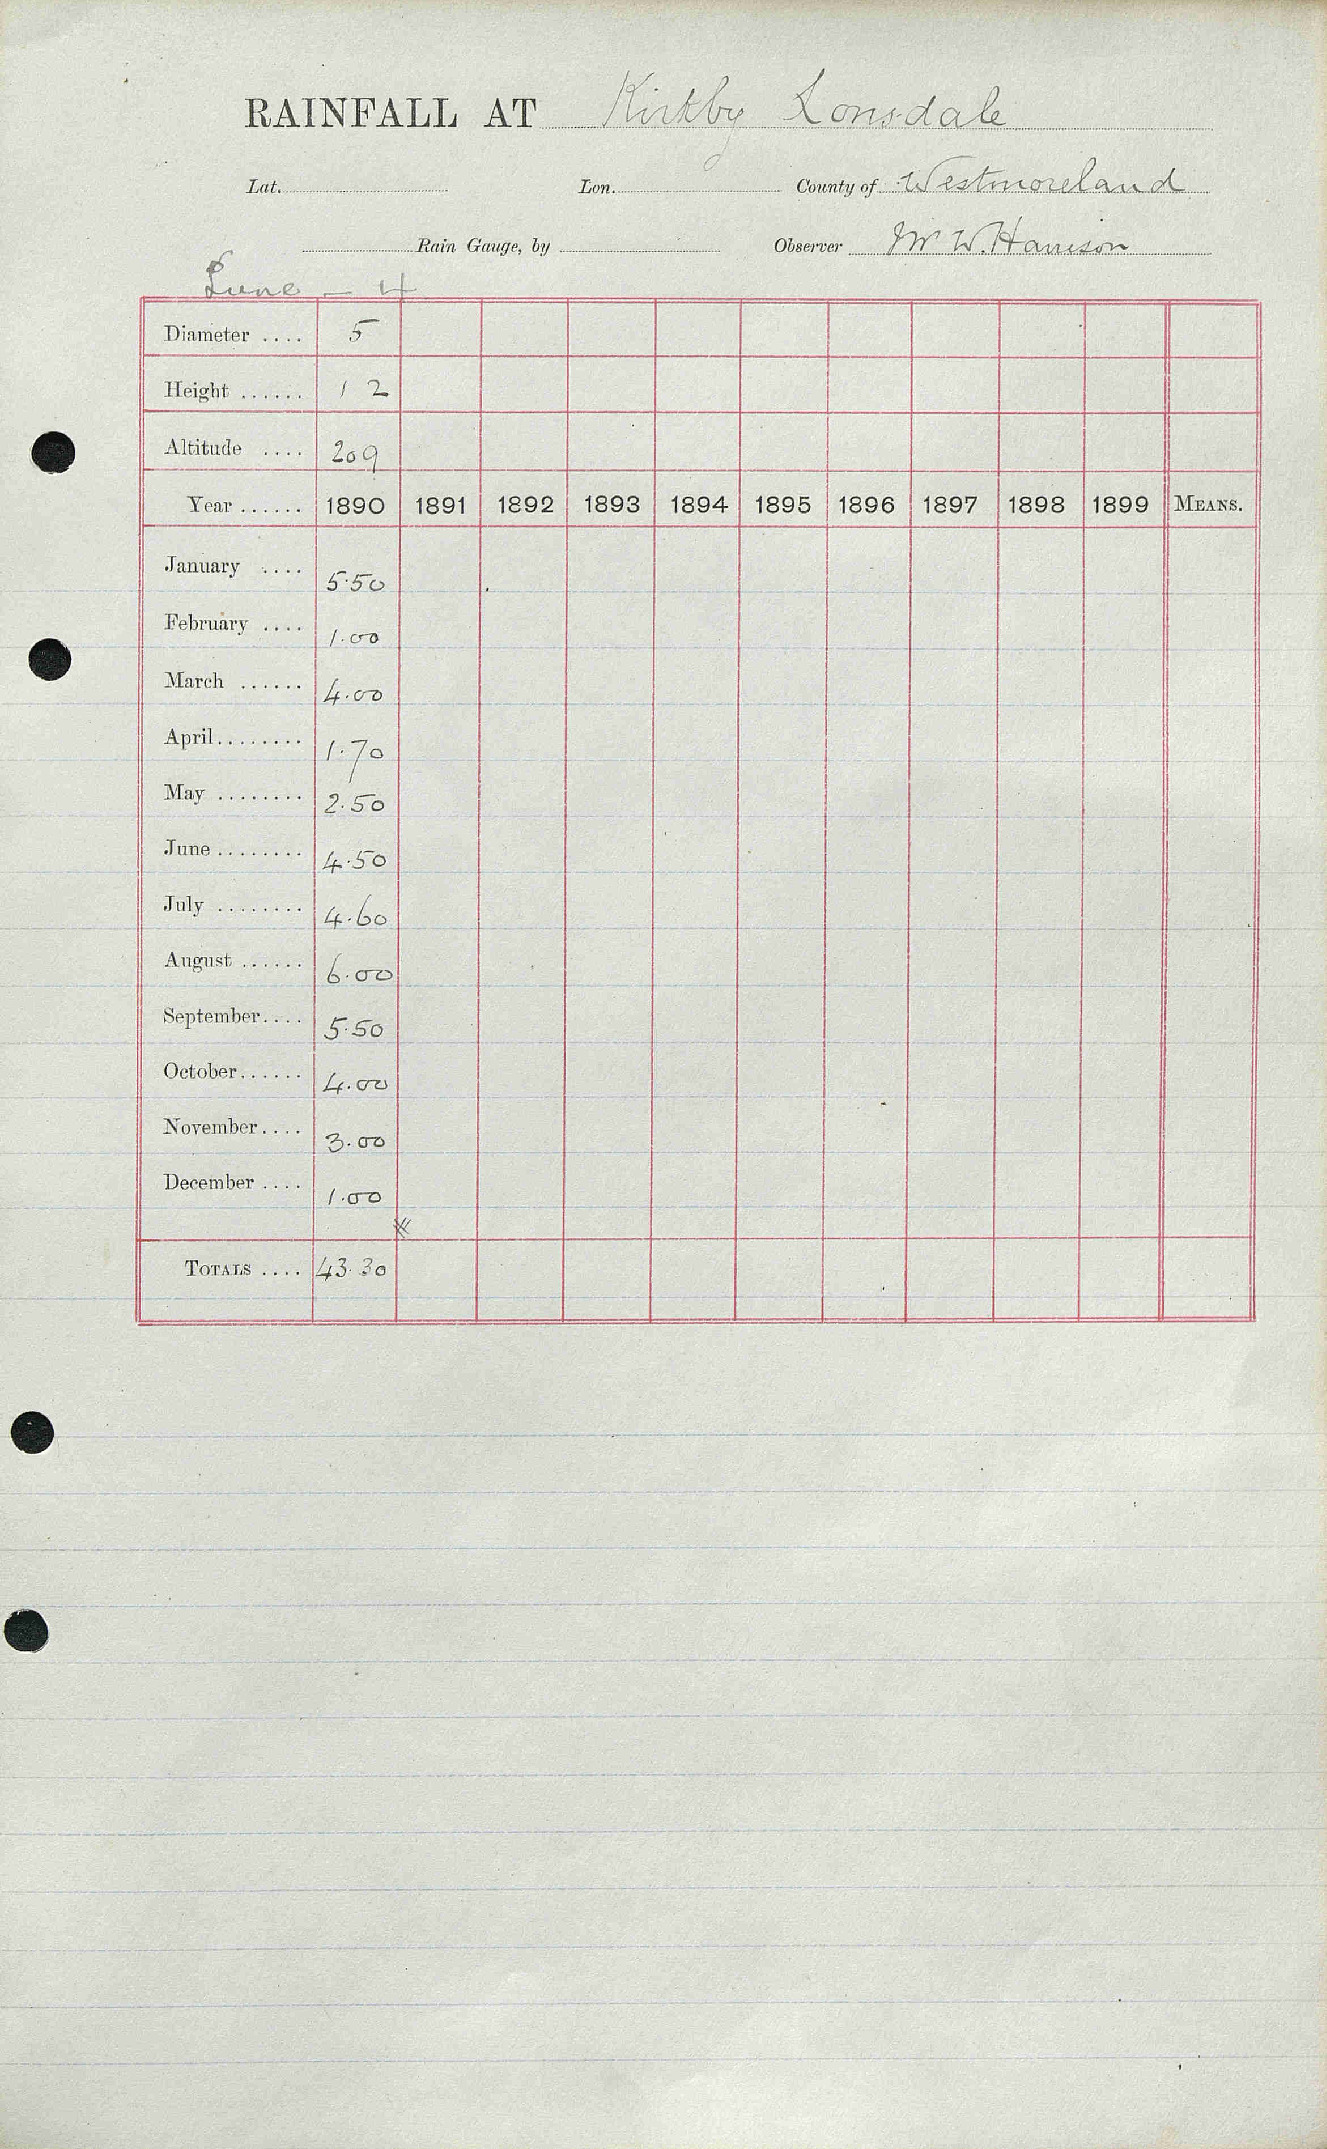 RAINFALL AT Kirkby Lonsdale
Lat. Lon. County of Westmoreland
Rain Gauge, by Observer Mr W. Harrison
Lune - 4
Diameter .... 5
Height ...... 12
Altitude .... 209
Year ...... 1890 1891 1892 1893 1894 1895 1896 1897 1898 1899 MEANS.
January .... 5.50
February .... 1.00
March ...... 4.00
April ........ 1.70
May ........ 2.50
June ........ 4.50
July ........ 4.60
August ...... 6.00
September .... 5.50
October ...... 4.00
November .... 3.00
December .... 1.00
TOTALS .... 43.30